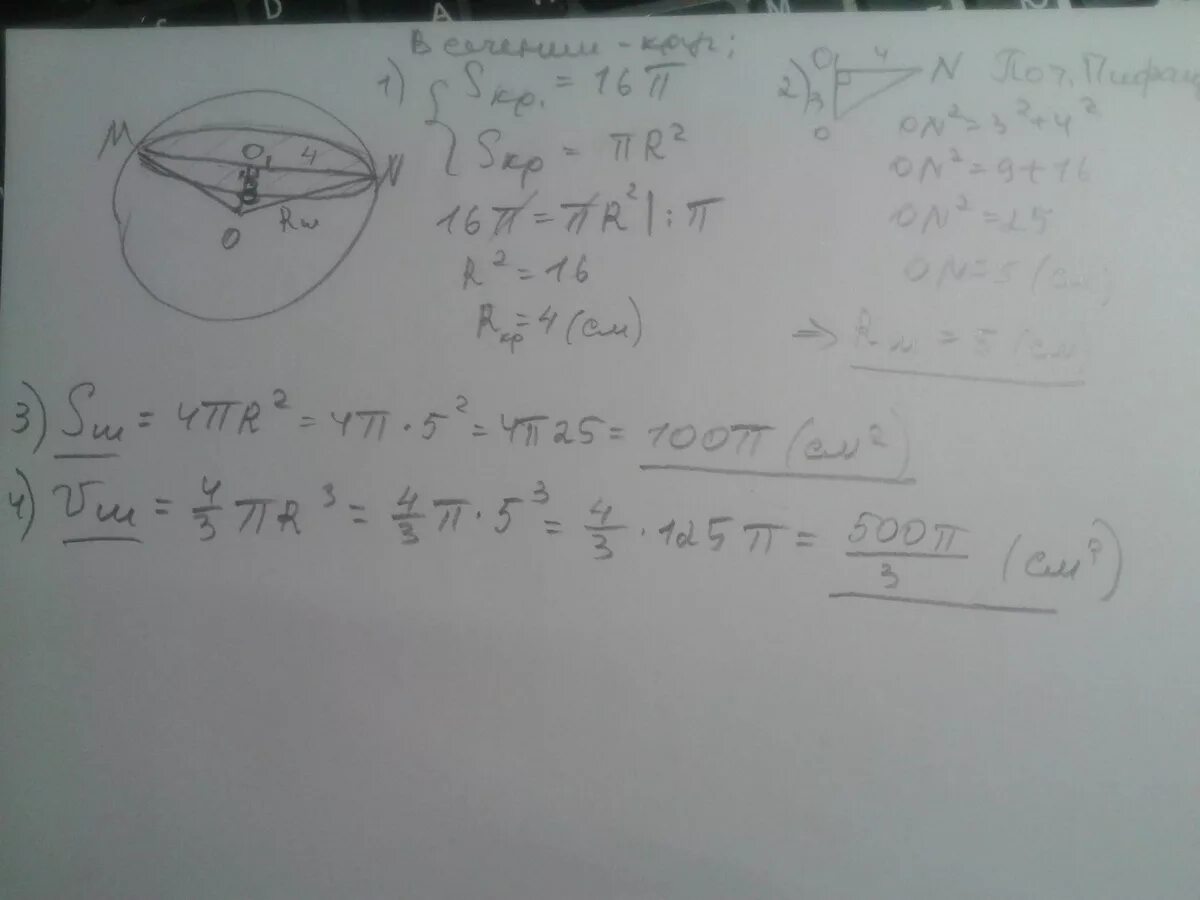 В сечении - круг;
1) { Sкр. = 16π
Sкр = πR²
16π = πR² | : π
R² = 16
Rкр = 4 (см)
M O₁ 4 N
Rш
O
2) O 4 N По т. Пифагор
3
O
ON² = 3² + 4²
ON² = 9 + 16
ON² = 25
ON = 5 (см)
⇒ Rш = 5 (см
3) Sш = 4πR² = 4π · 5² = 4π25 = 100π (см²)
4) Vш = 4/3 πR³ = 4/3 π · 5³ = 4/3 · 125π = 500π/3 (см³)